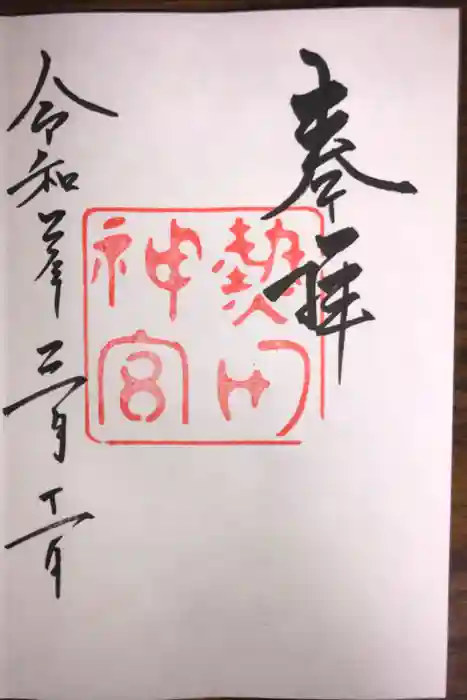 奉拝
熱田神宮
令和二年三月十一日